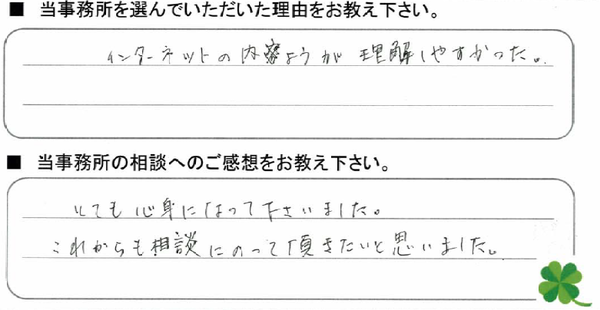 ■ 当事務所を選んでいただいた理由をお教え下さい。
インターネットの内容ようが理解しやすかった。
■ 当事務所の相談へのご感想をお教え下さい。
とても心身になって下さいました。
これからも相談にのって頂きたいと思いました。